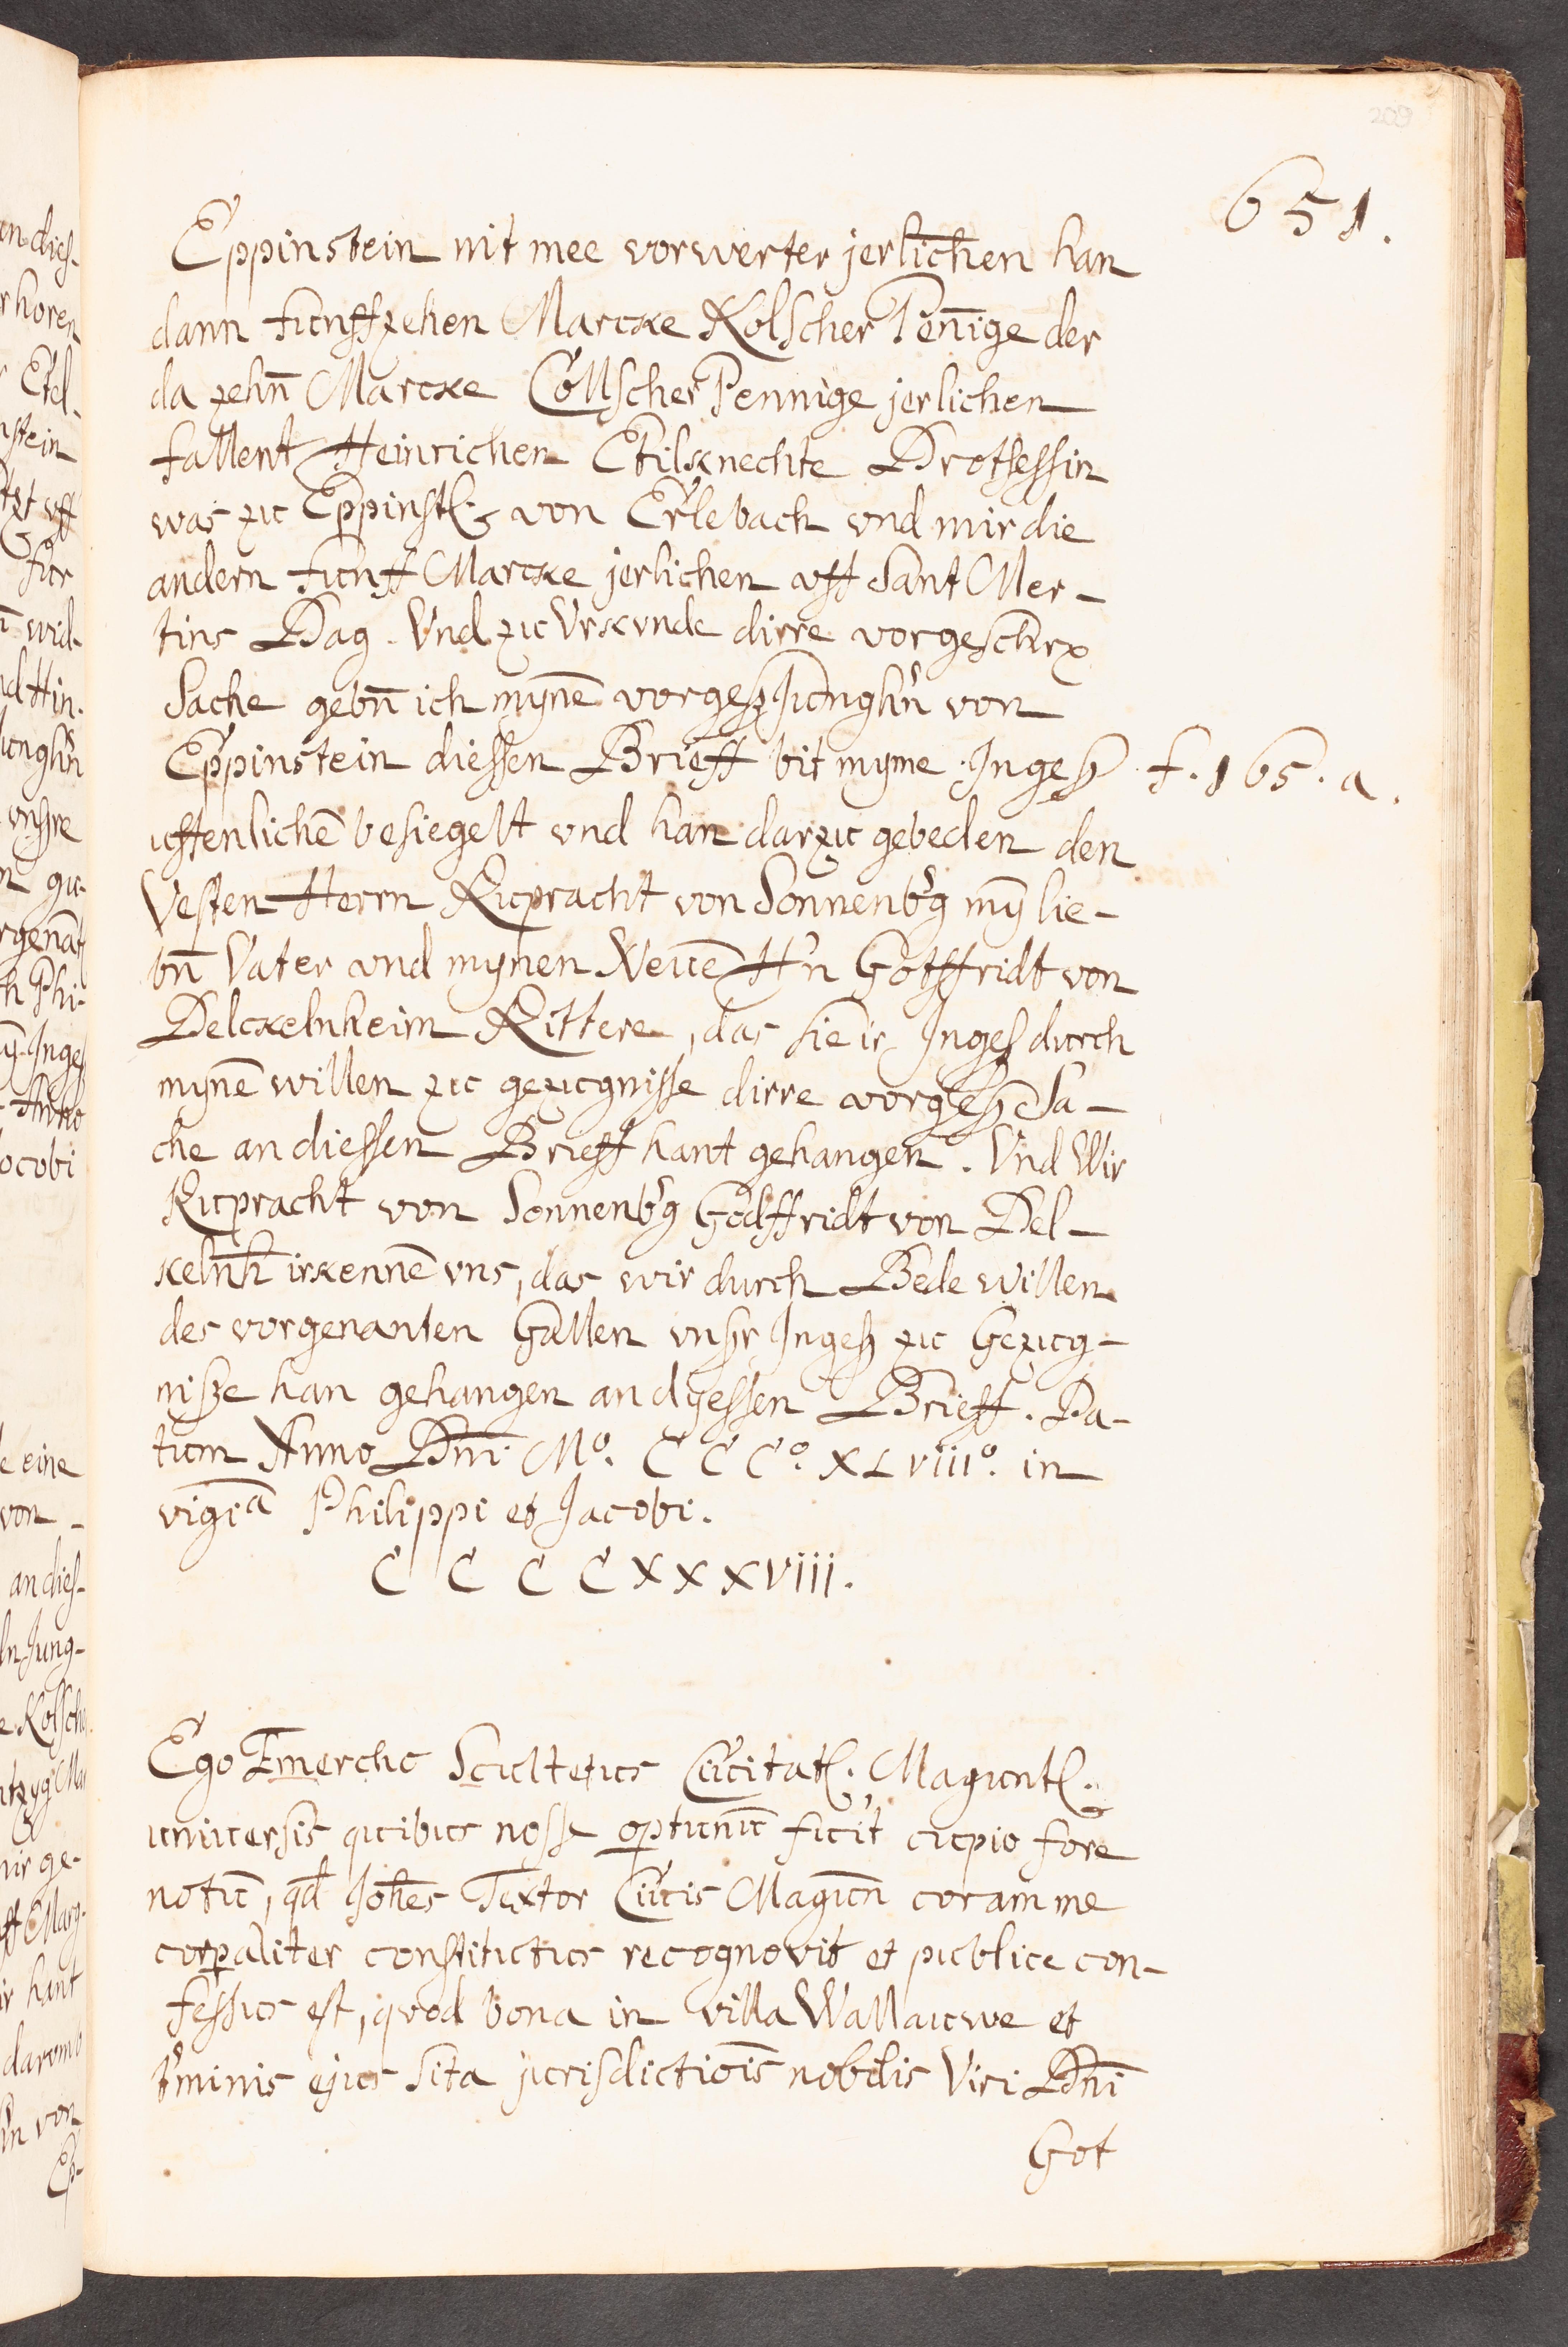 209
651.
Eppinstein nit mee vorwerter jerlichen han
dann funffzehen Marcke Kolscher Pen̄ige der
da zehn̄ Marcke Cöllscher Pennige jerlichen
fallent Heinrichen Etilsknechte Drotsessin
was zu Eppinstl. von Erlebach vnd mir die
andern funff Marcke jerlichen vff Sant Mer-
tins Dag. Vnd zu Vrkvnde dirre vorgeschrx
Sache gebn̄ ich mynē vorgeß Jungh'n von
Eppinstein diessen Brieff bit myme Ingeß f. 165. a.
uffenlichē besiegelt vnd han darzu gebeden den
Vesten Herrn Rupracht von Sonnenb'g mȳ lie-
bn̄ Vater vnd mynen Neuē H'n Gotffridt von
Delckelnheim Rittere, das sie ir Ingeß durch
mynē willen zu gezugnisse dirre vorgeß Sa-
che an diessen Brieff hant gehangen. Vnd Wir
Rupracht von Sonnenb'g Godffridt von Del-
kelnh̄ irkennē vns, das wir durch Bede willen
des vorgenanten Gallen vnßr Ingeß zu Gezug-
nisze han gehangen an dyessen Brieff. Da-
tum Anno Dn̄i Mº. C C Cº. XLviiiº. in
vigiᵃ Philippi et Jacobi.
C C C C XXXVIII.
Ego Emercho Scultetus Ciuitatl. Maguntl.
uniuersis quibus nosse optunū fuit cupio fore
notū, qd Joh̄es Textor Ciuis Magun̄ coram me
corꝑaliter constitutus recognovit et publice con-
fessus est, quod bona in villa Wallauwe et
t'minis ejus sita jurisdictiōis nobilis Viri Dn̄i
Got